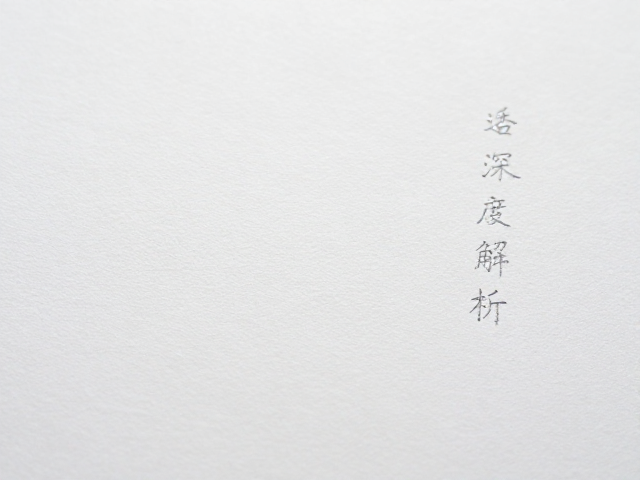 适深度解析